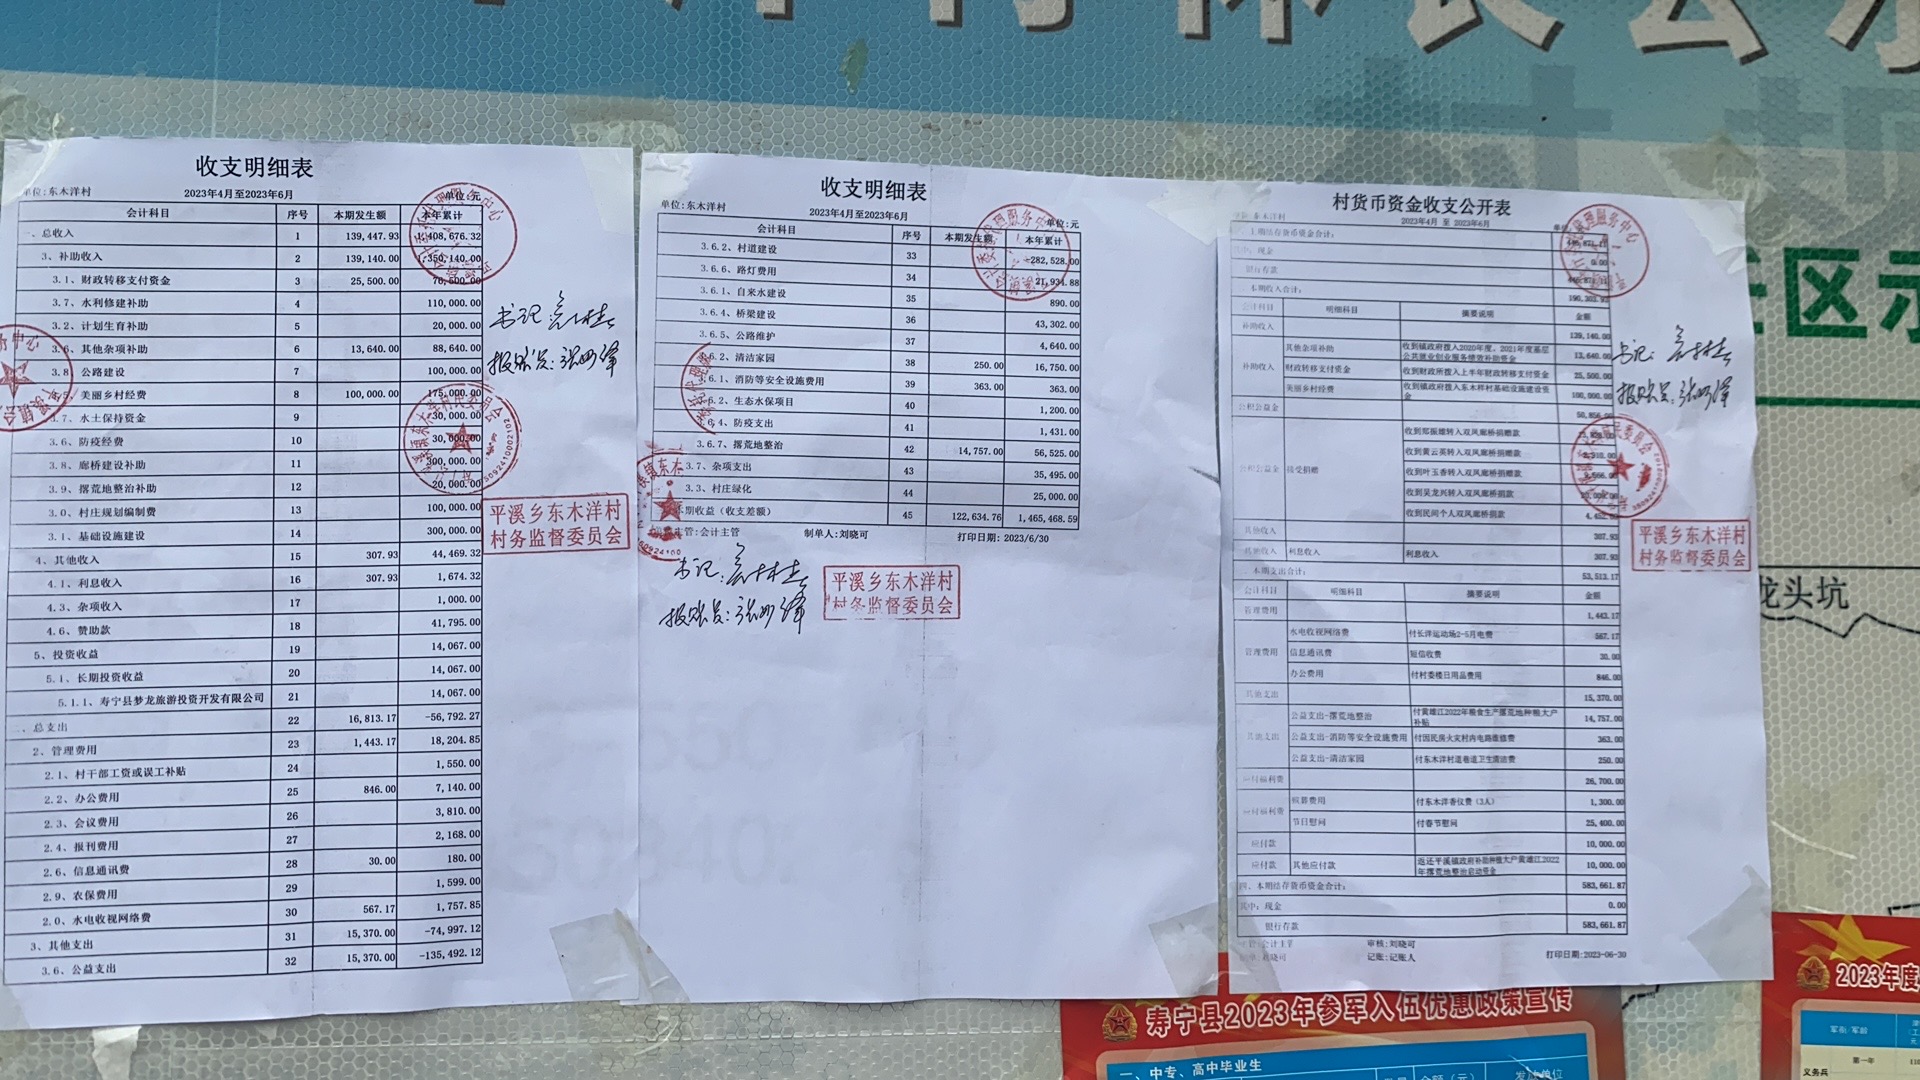 收支明细表
单位:东木洋村 2023年4月至2023年6月 单位:元
会计科目 序号 本期发生额 本年累计
一、总收入 1 139,447.93 1,408,676.32
3、补助收入 2 139,140.00 1,350,140.00
3.1、财政转移支付资金 3 25,500.00 76,500.00
3.7、水利修建补助 4 110,000.00
3.2、计划生育补助 5 20,000.00
3.6、其他杂项补助 6 13,640.00 88,640.00
3.8、公路建设 7 100,000.00
美丽乡村经费 8 100,000.00 175,000.00
3.7、水土保持资金 9 30,000.00
3.6、防疫经费 10 30,000.00
3.8、廊桥建设补助 11 300,000.00
3.9、撂荒地整治补助 12 20,000.00
3.0、村庄规划编制费 13 100,000.00
3.1、基础设施建设 14 300,000.00
4、其他收入 15 307.93 44,469.32
4.1、利息收入 16 307.93 1,674.32
4.3、杂项收入 17 1,000.00
4.6、赞助款 18 41,795.00
5、投资收益 19 14,067.00
5.1、长期投资收益 20 14,067.00
5.1.1、寿宁县梦龙旅游投资开发有限公司 21 14,067.00
二、总支出 22 16,813.17 -56,792.27
2、管理费用 23 1,443.17 18,204.85
2.1、村干部工资或误工补贴 24 1,550.00
2.2、办公费用 25 846.00 7,140.00
2.3、会议费用 26 3,810.00
2.4、报刊费用 27 2,168.00
2.6、信息通讯费 28 30.00 180.00
2.9、农保费用 29 1,599.00
2.0、水电收视网络费 30 567.17 1,757.85
3、其他支出 31 15,370.00 -74,997.12
3.6、公益支出 32 15,370.00 -135,492.12
书记:
报账员:
平溪乡东木洋村
村务监督委员会
收支明细表
单位:东木洋村 2023年4月至2023年6月 单位:元
会计科目 序号 本期发生额 本年累计
3.6.2、村道建设 33 -282,528.00
3.6.6、路灯费用 34 21,934.88
3.6.1、自来水建设 35 890.00
3.6.4、桥梁建设 36 43,302.00
3.6.5、公路维护 37 4,640.00
3.6.2、清洁家园 38 250.00 16,750.00
3.6.1、消防等安全设施费用 39 363.00 363.00
3.6.2、生态水保项目 40 1,200.00
3.6.4、防疫支出 41 1,431.00
3.6.7、撂荒地整治 42 14,757.00 56,525.00
3.7、杂项支出 43 35,495.00
3.3、村庄绿化 44 25,000.00
本期收益（收支差额） 45 122,634.76 1,465,468.59
主管:会计主管 制单人:刘晓可 打印日期:2023/6/30
书记:
报账员:
平溪乡东木洋村
村务监督委员会
村货币资金收支公开表
东木洋村 2023年4月 至 2023年6月
一、上期结存货币资金合计:
其中: 现金 0.00
银行存款
本期收入合计: 190,303.93
会计科目 明细科目 摘要说明 金额
补助收入 139,140.00
补助收入 其他杂项补助 收到镇政府拨入2020年度、2021年度基层公共就业创业服务绩效补助资金 13,640.00
财政转移支付资金 收到财政所拨入上半年财政转移支付资金 25,500.00
美丽乡村经费 收到镇政府拨入东木样村基础设施建设资金 100,000.00
公积公益金 50,856.00
公积公益金 接受捐赠 收到郑振雄转入双凤廊桥捐赠款
收到黄云英转入双凤廊桥捐赠款
收到叶玉香转入双凤廊桥捐赠款
收到吴龙兴转入双凤廊桥捐赠款
收到民间个人双凤廊桥捐款
其他收入 307.93
其他收入 利息收入 利息收入 307.93
本期支出合计: 53,513.17
会计科目 明细科目 摘要说明 金额
管理费用 1,443.17
管理费用 水电收视网络费 付长洋运动场2-5月电费 567.17
信息通讯费 短信收费 30.00
办公费用 付村委楼日用品费用 846.00
其他支出 15,370.00
其他支出 公益支出-撂荒地整治 付黄雄江2022年粮食生产撂荒地种粮大户补贴 14,757.00
公益支出-消防等安全设施费用 付因民房火灾村内电路维修费 363.00
公益支出-清洁家园 付东木洋村道巷道卫生清洁费 250.00
应付福利费 26,700.00
应付福利费 殡葬费用 付东木洋香仪费（3人） 1,300.00
节日慰问 付春节慰问 25,400.00
应付款 10,000.00
应付款 其他应付款 返还平溪镇政府补助种粮大户黄雄江2022年撂荒地整治启动资金 10,000.00
四、本期结存货币资金合计: 583,661.87
其中: 现金 0.00
银行存款 583,661.87
主管:会计主管 审核:刘晓可 打印日期:2023-06-30
记账:记账人
书记:
报账员:
平溪乡东木洋村
村务监督委员会
区示
龙头坑
寿宁县2023年参军入伍优惠政策宣传
一、中专、高中毕业生
金额（元） 发放单位
2023年度
第一年
义务兵